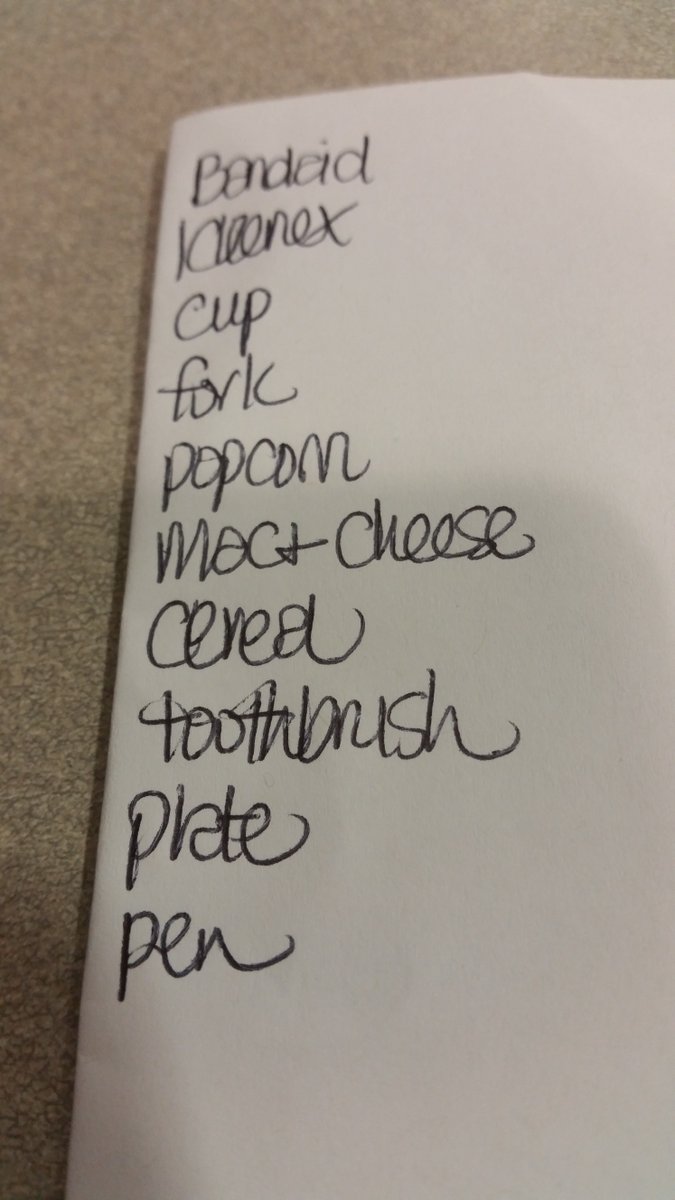 Bandaid
kleenex
cup
fork
popcorn
mac+ cheese
cereal
toothbrush
plate
pen